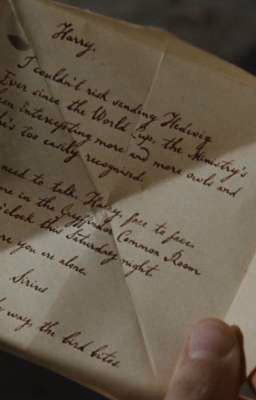 Harry,
I couldn't risk sending Hedwig
Ever since the World Cup, the Ministry's
been intercepting more and more owls and
he's too easily recognised.
need to talk, Harry, face to face.
me in the Gryffindor Common Room
o'clock this Saturday night.
re you are alone.
Sirius
way, the bird bites.